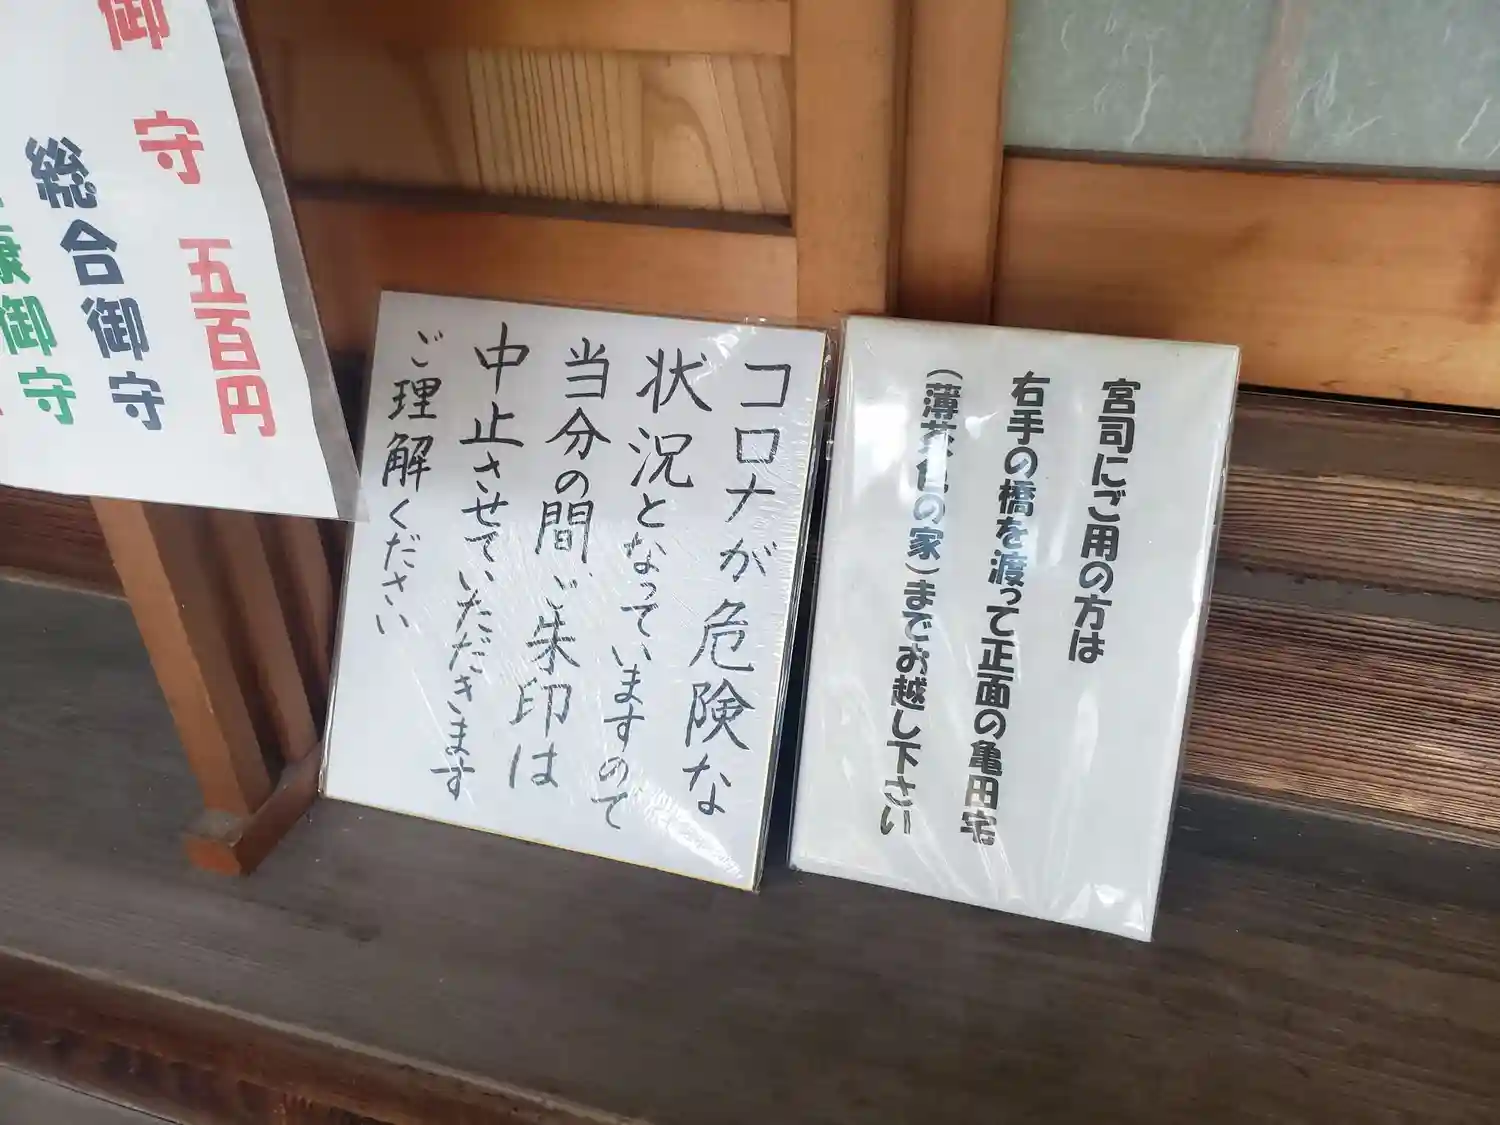 宮司にご用の方は
右手の橋を渡って正面の亀田宅
（薄茶色の家）までお越し下さい
コロナが危険な
状況となっていますので
当分の間ご朱印は
中止させていただきます
ご理解ください
御守 五百円
総合御守
康御守